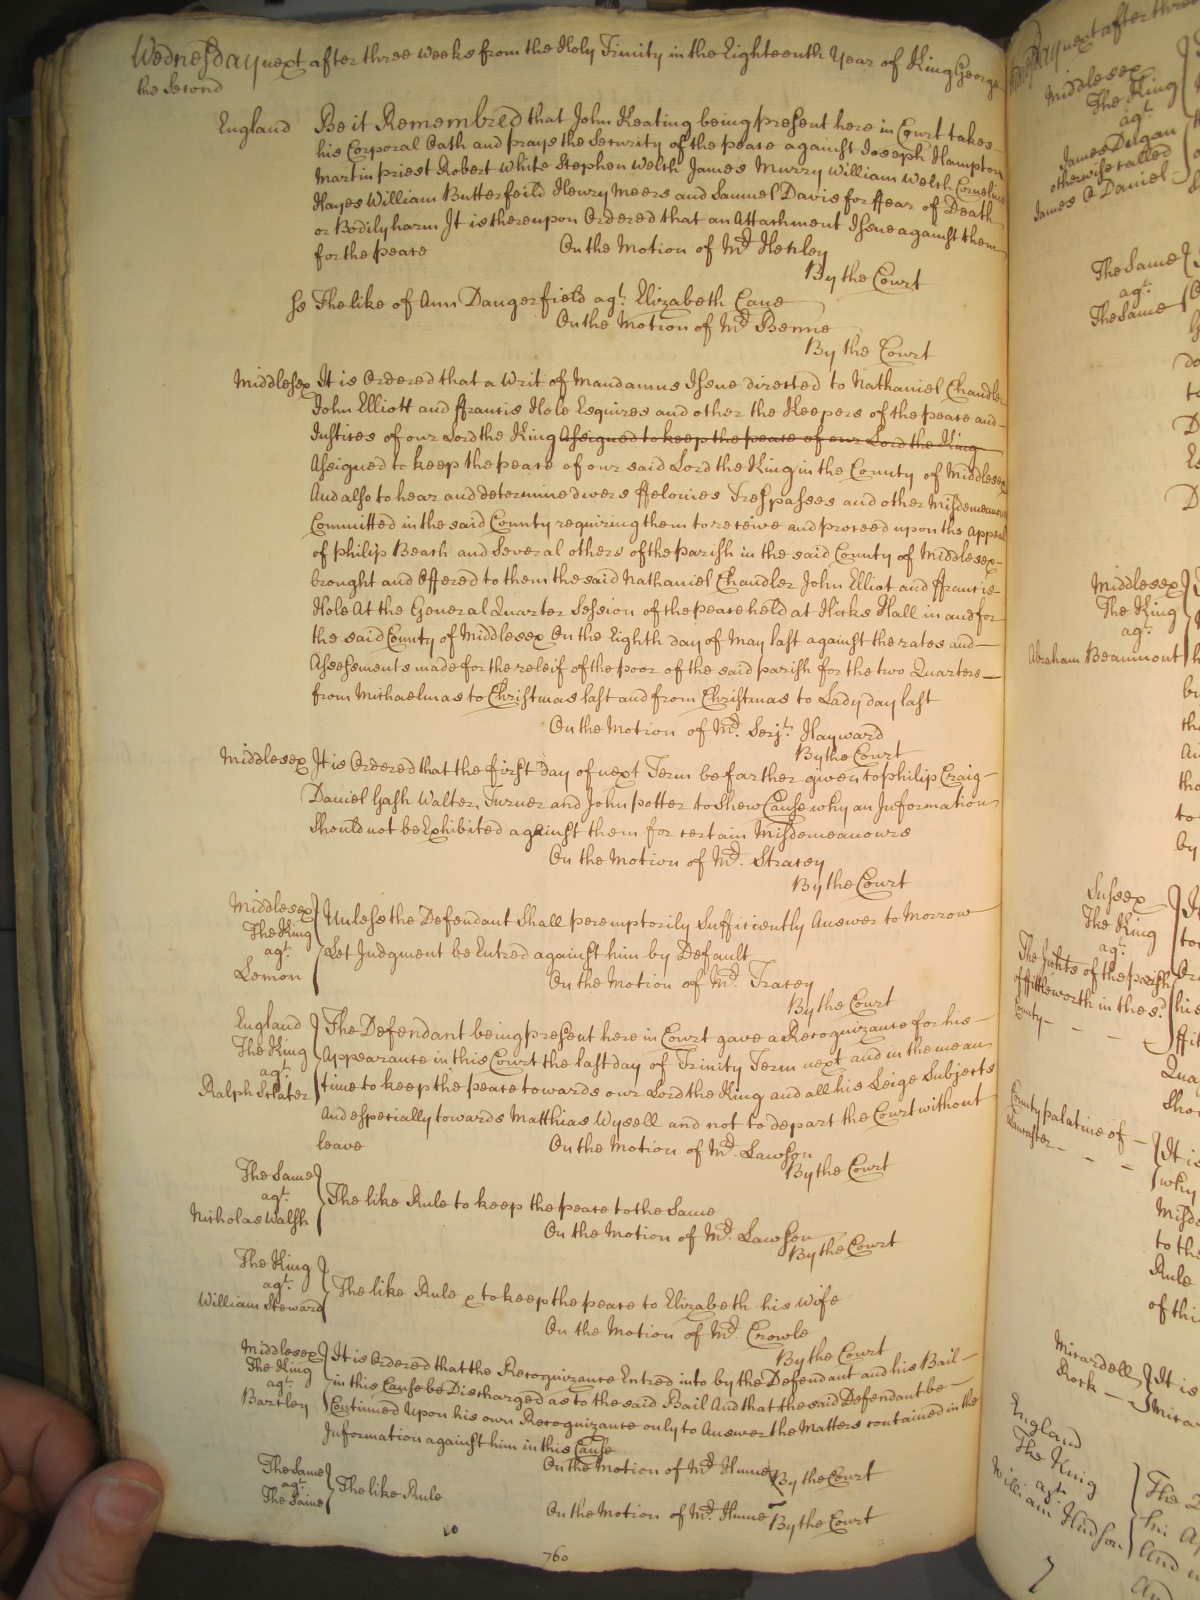 Wednesday next after three weeks from the Holy Trinity in the Eighteenth Year of King George
the Second
England Be it Remembred that John Keating being present here in Court takes
his Corporal Oath and prays the Security of the peace against Joseph Hampton
Martin priest Robert White Stephen Welsh James Murry William Welsh Cornelius
Hayes William Butterfeild Henry Meers and Samuel Davis for ffear of Death
or Bodily harm It is thereupon Ordered that an Attachment Issue against them
for the peace On the Motion of Mr. Henley
By the Court
ss The like of Ann Dangerfield agt. Elizabeth Cane
On the Motion of Mr.
By the Court
Middlesex It is Ordered that a Writ of Mandamus Issue directed to Nathaniel Chandler
John Elliott and ffrancis Hole Esquires and other the Keepers of the peace and
Justices of our Lord the King Assigned to keep the peace of our Lord the King
Assigned to keep the peace of our said Lord the King in the County of Middlesex
And also to hear and determine divers ffelonies Trespasses and other Misdemeanours
Committed in the said County requiring them to receive and proceed upon the Appeal
of philip Beach and Several others of the parish in the said County of Middlesex
brought and Offered to them the said Nathaniel Chandler John Elliot and ffrancis
Hole At the General Quarter Session of the peace held at Hicks Hall in and for
the said County of Middlesex On the Eighth day of May last against the rates and
Assessments made for the releif of the poor of the said parish for the two Quarters
from Michaelmas to Christmas last and from Christmas to Lady day last
On the Motion of Mr. Serjt. Hayward
By the Court
Middlesex It is Ordered that the first day of next Term be farther given to philip Craig
Daniel Gash Walter Turner and John potter to Shew Cause why an Information
Should not be Exhibited against them for certain Misdemeanours
On the Motion of Mr. Stracey
By the Court
Middlesex
The King
agt.
Lemon
Unless the Defendant Shall peremptorily Sufficiently Answer to Morrow
Let Judgment be Entred against him by Default
On the Motion of Mr. Tracey
By the Court
England
The King
agt.
Ralph Sclater
The Defendant being present here in Court gave a Recognizance for his
Appearance in this Court the last day of Trinity Term next and in the mean
time to keep the peace towards our Lord the King and all his Leige Subjects
And especially towards Matthias Wysell and not to depart the Court without
leave On the Motion of Mr. Lawson
By the Court
The Same
agt.
Nicholas Walsh
The like Rule to keep the peace to the Same
On the Motion of Mr. Lawson
By the Court
The King
agt.
William Steward
The like Rule to keep the peace to Elizabeth his Wife
On the Motion of Mr. Crowle
By the Court
Middlesex
The King
agt.
Bartley
It is Ordered that the Recognizance Entred into by the Defendant and his Bail
in this Cause be Discharged as to the said Bail And that the said Defendant be
Continued Upon his own Recognizance only to Answer the Matters contained in the
Information against him in this Cause
On the Motion of Mr. Hume
By the Court
The Same
agt.
The Same
The like Rule
On the Motion of Mr. Hume
By the Court
760
next after three
Middlesex
The King
agt.
James Dugan
otherwise called
James O Daniel
The Same
agt.
The Same
Middlesex
The King
agt.
Abraham Beaumont
Sussex
The King
agt.
The Inhts of the parish
ffittleworth in the sd.
County
County palatine of
Lancaster
It is
why
Misde
to the
Rule
of this
It is
England
The King
agt.
William Hudson